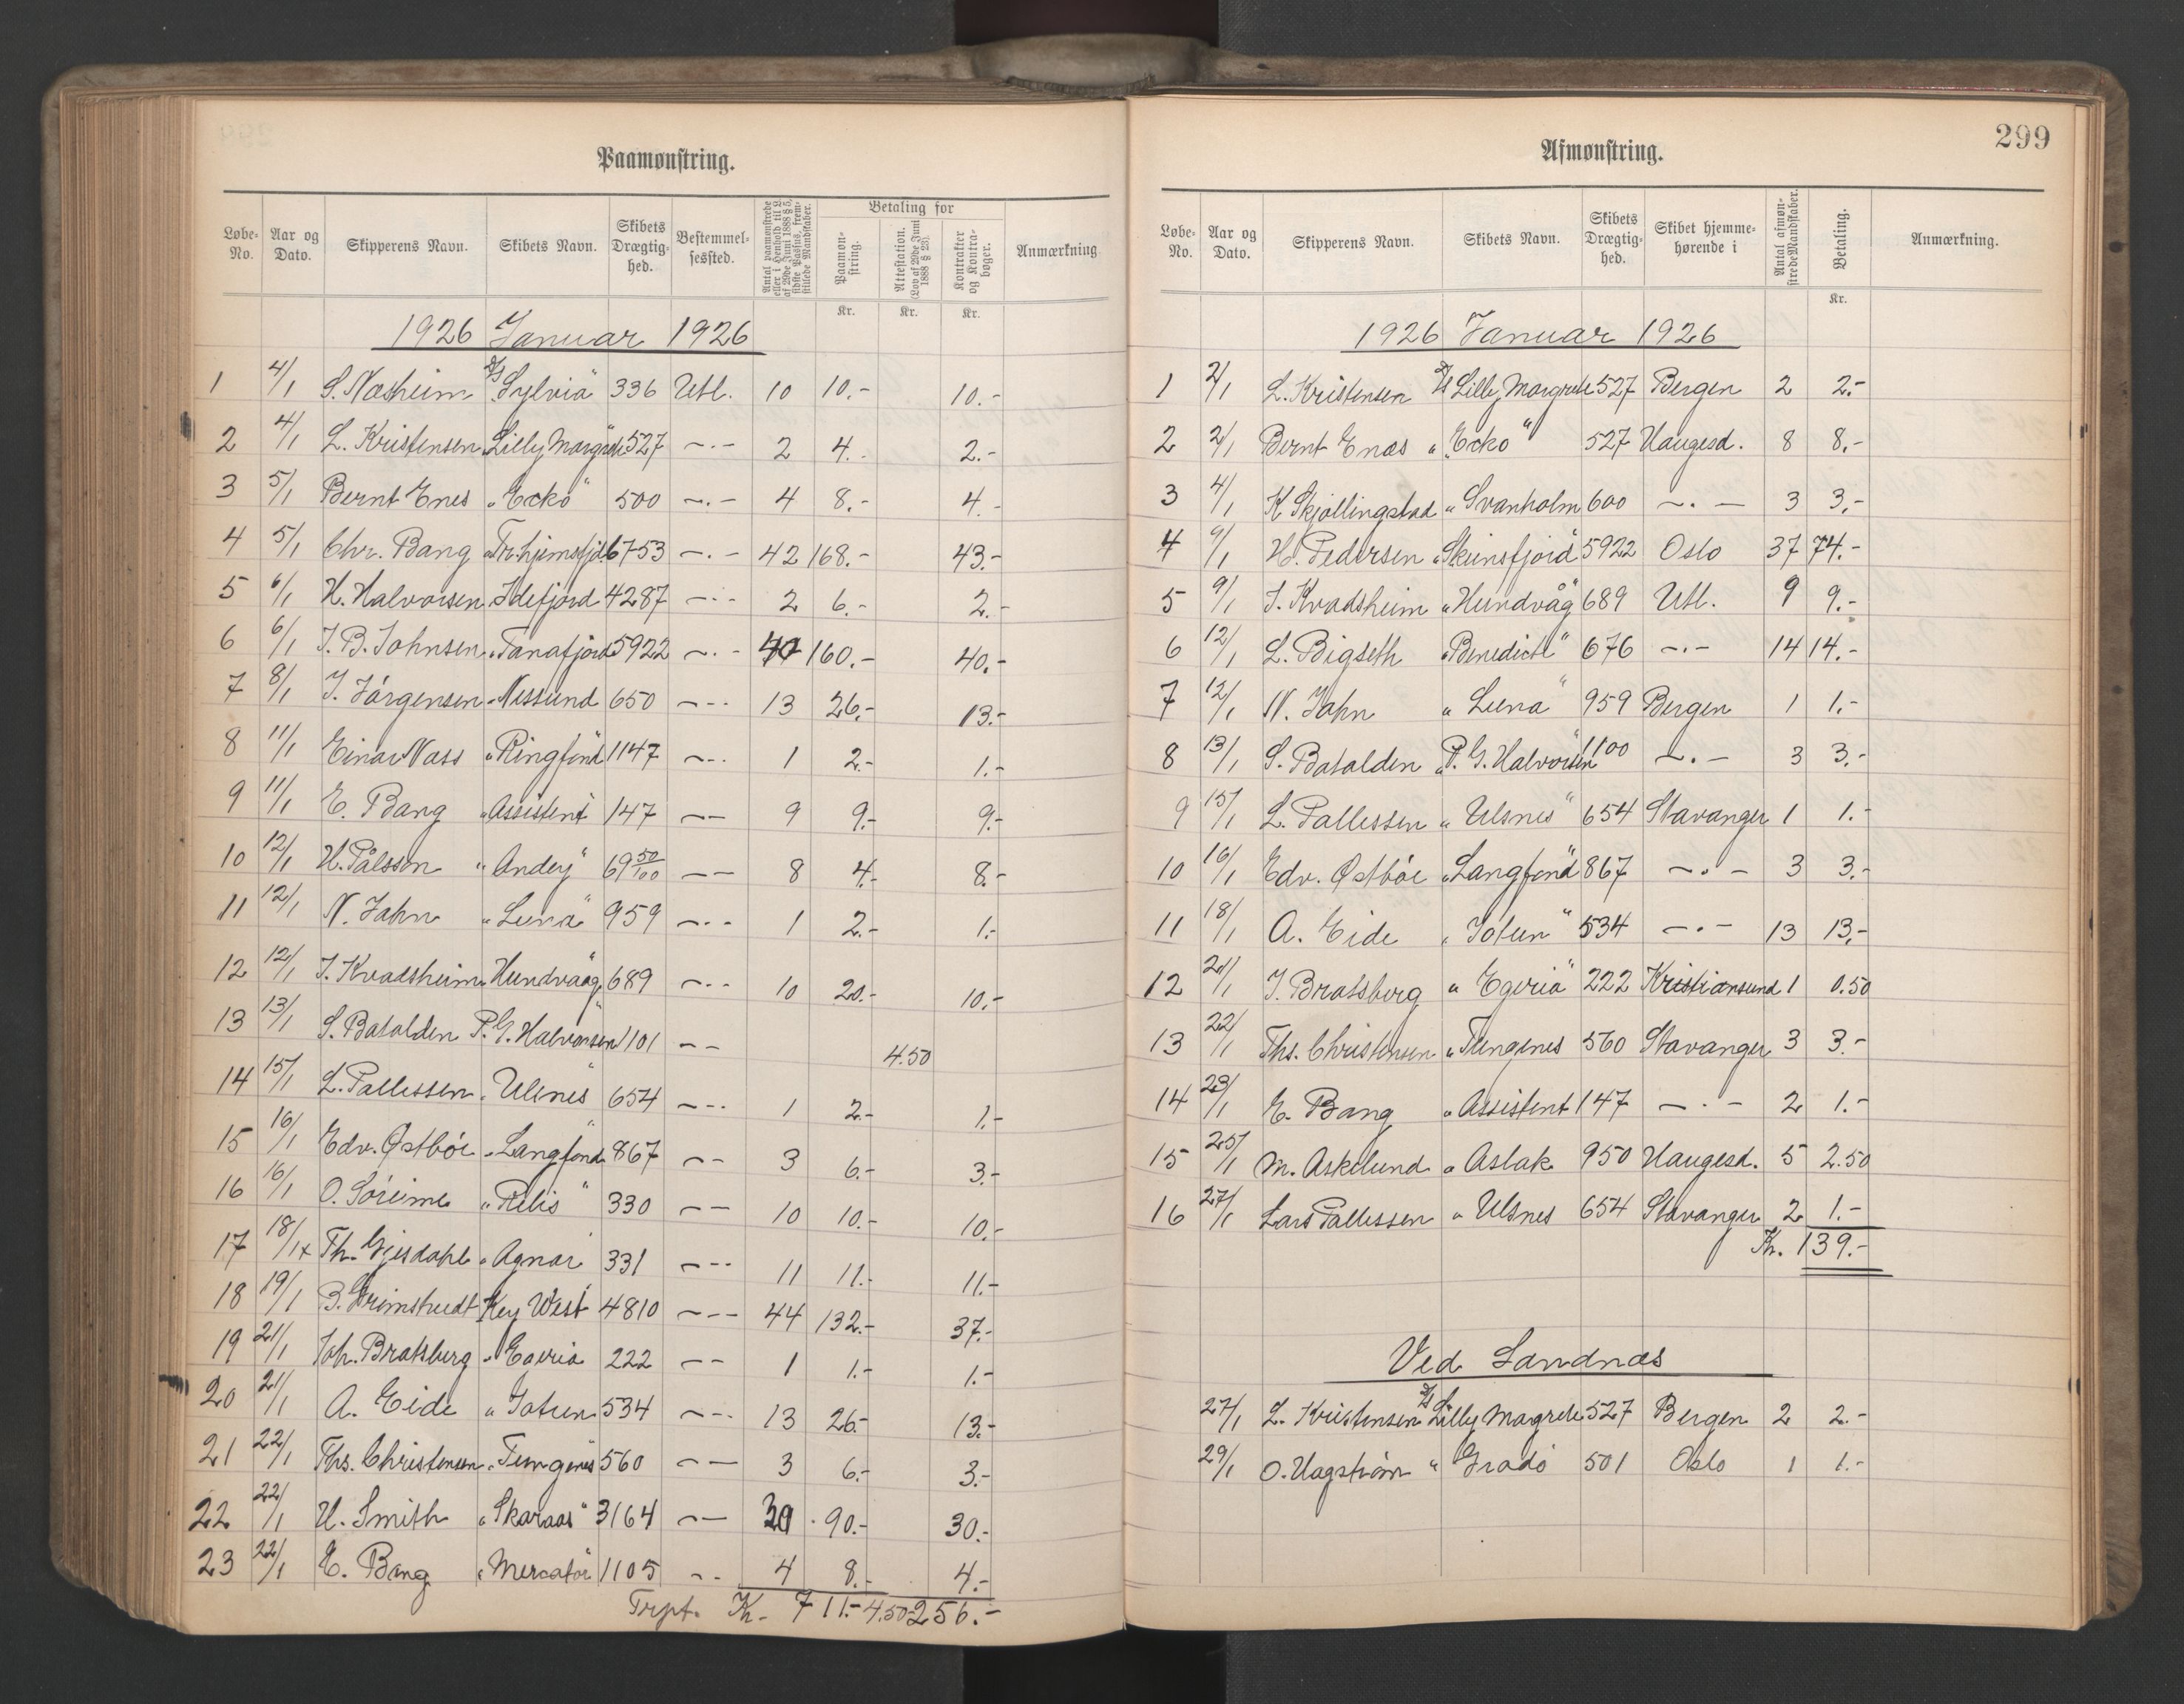 Paamønstring.
Løbe-No. Aar og Dato. Skipperens Navn. Skibets Navn. Skibets Drægtighed. Bestemmelsessted. Antal paamønstrede eller i Henhold til L. af 29de Juni 1888 § 5, sidste Passus, fremstillede Mandskaber. Betaling for Paamønstring. Attestation. (Lov af 29de Juni 1888 § 28). Kontrakter og Kontrabøger. Anmærkning.
Kr. Kr. Kr.
1926 Januar 1926
1 4/1 S. Næsheim D/S "Sylvia" 336 Utl. 10 10.- 10.-
2 4/1 L. Kristensen " Lilly Margrete 527 -·- 2 4.- 2.-
3 5/1 Bernt Enes " Ecko" 500 -·- 4 8.- 4.-
4 5/1 Chr. Bang " Tr.hjemsfjd. 6753 -·- 42 168.- 43.-
5 6/1 H. Halvorsen " Idefjord 4287 -·- 2 6.- 2.-
6 6/1 J. B. Johnsen " Tanafjord 5922 -·- 40 160.- 40.-
7 8/1 J. Jørgensen " Nessund 650 -·- 13 26.- 13.-
8 11/1 Einar Næss " Ringfond 1147 -·- 1 2.- 1.-
9 11/1 E. Bang " Assistent 147 -- 9 9.- 9.-
10 12/1 H. Pålsson " Andey" 69 50/100 -- 8 4.- 8.-
11 12/1 N. Jahn " Luna" 959 -·- 1 2.- 1.-
12 12/1 J. Kvadsheim " Hundvaag 689 -·- 10 20.- 10.-
13 13/1 S. Batalden P. G. Halvorsen 1101 -- 4.50
14 15/1 L. Pallessen " Ulsnes" 654 -·- 1 2.- 1.-
15 16/1 Edv. Østbøe " Langfond 867 -- 3 6.- 3.-
16 16/1 O. Søreime " Relis" 330 -- 10 10.- 10.-
17 18/1 x Th. Gjesdahl " Agnar 331 -·- 11 11.- 11.-
18 19/1 B. Grimstvedt Key West 4810 -·- 44 132.- 37.-
19 21/1 Joh. Bratsberg " Egeria 222 -- 1 1.- 1.-
20 21/1 A. Eide " Jotun 534 -·- 13 26.- 13.-
21 22/1 Ths. Christensen " Tungenes 560 -- 3 6.- 3.-
22 22/1 H. Smith " Skaraas" 3164 -- 30 90.- 30.-
23 22/1 E. Bang " Mercator 1105 -- 4 8.- 4.-
Trpt. Kr. 711.- 4.50 256.-
299
Afmønstring.
Løbe-No. Aar og Dato. Skipperens Navn. Skibets Navn. Skibets Drægtighed. Skibet hjemmehørende i Antal afmønstrede Mandskaber. Betaling. Anmærkning.
Kr.
1926 Januar 1926
1 2/1 L. Kristensen D/S Lilly Margrete 527 Bergen 2 2.-
2 2/1 Bernt Enæs " "Ecko" 527 Haugesd. 8 8.-
3 4/1 K Skjøllingstad " Svanholm 600 -·- 3 3.-
4 9/1 H. Pedersen " Skiensfjord 5922 Oslo 37 74.-
5 9/1 J. Kvadsheim " Hundvåg" 689 Utl. 9 9.-
6 12/1 L. Bigseth " Benedicte" 676 -·- 14 14.-
7 12/1 N. Jahn " Luna" 959 Bergen 1 1.-
8 13/1 S. Batalden " P. G. Halvorsen 1100 -·- 3 3.-
9 15/1 L. Pallessen " Ulsnes" 654 Stavanger 1 1.-
10 16/1 Edv. Østbøe " Langfond 867 -·- 3 3.-
11 18/1 A. Eide " Jotun" 534 -·- 13 13.-
12 21/1 J. Bratsberg " Egeria" 222 Kristiansund 1 0.50
13 22/1 Ths. Christensen " Tungenes 560 Stavanger 3 3.-
14 23/1 E. Bang " Assistent 147 -·- 2 1.-
15 25/1 M. Askelund " Aslak 950 Haugesd. 5 2.50
16 27/1 Lars Pallessen " Ulsnes 654 Stavanger 2 1.-
Kr. 139.-
Ved Sandnæs
27/1 L. Kristensen D/S Lilly Margrete 527 Bergen 2 2.-
29/1 O. Hagstrøm " Grado 501 Oslo 1 1.-